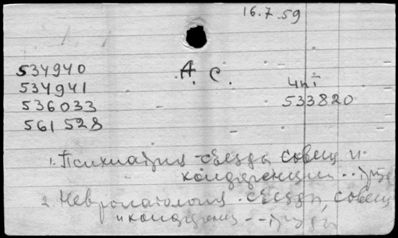 16.7.59
534940 А. С.
534941 Чит
536033 533820
561528
1. Психиатрия - съезды, совещ и
конференции - - труды
2. Невропатология - съезды, совещ
и конференц - - труды